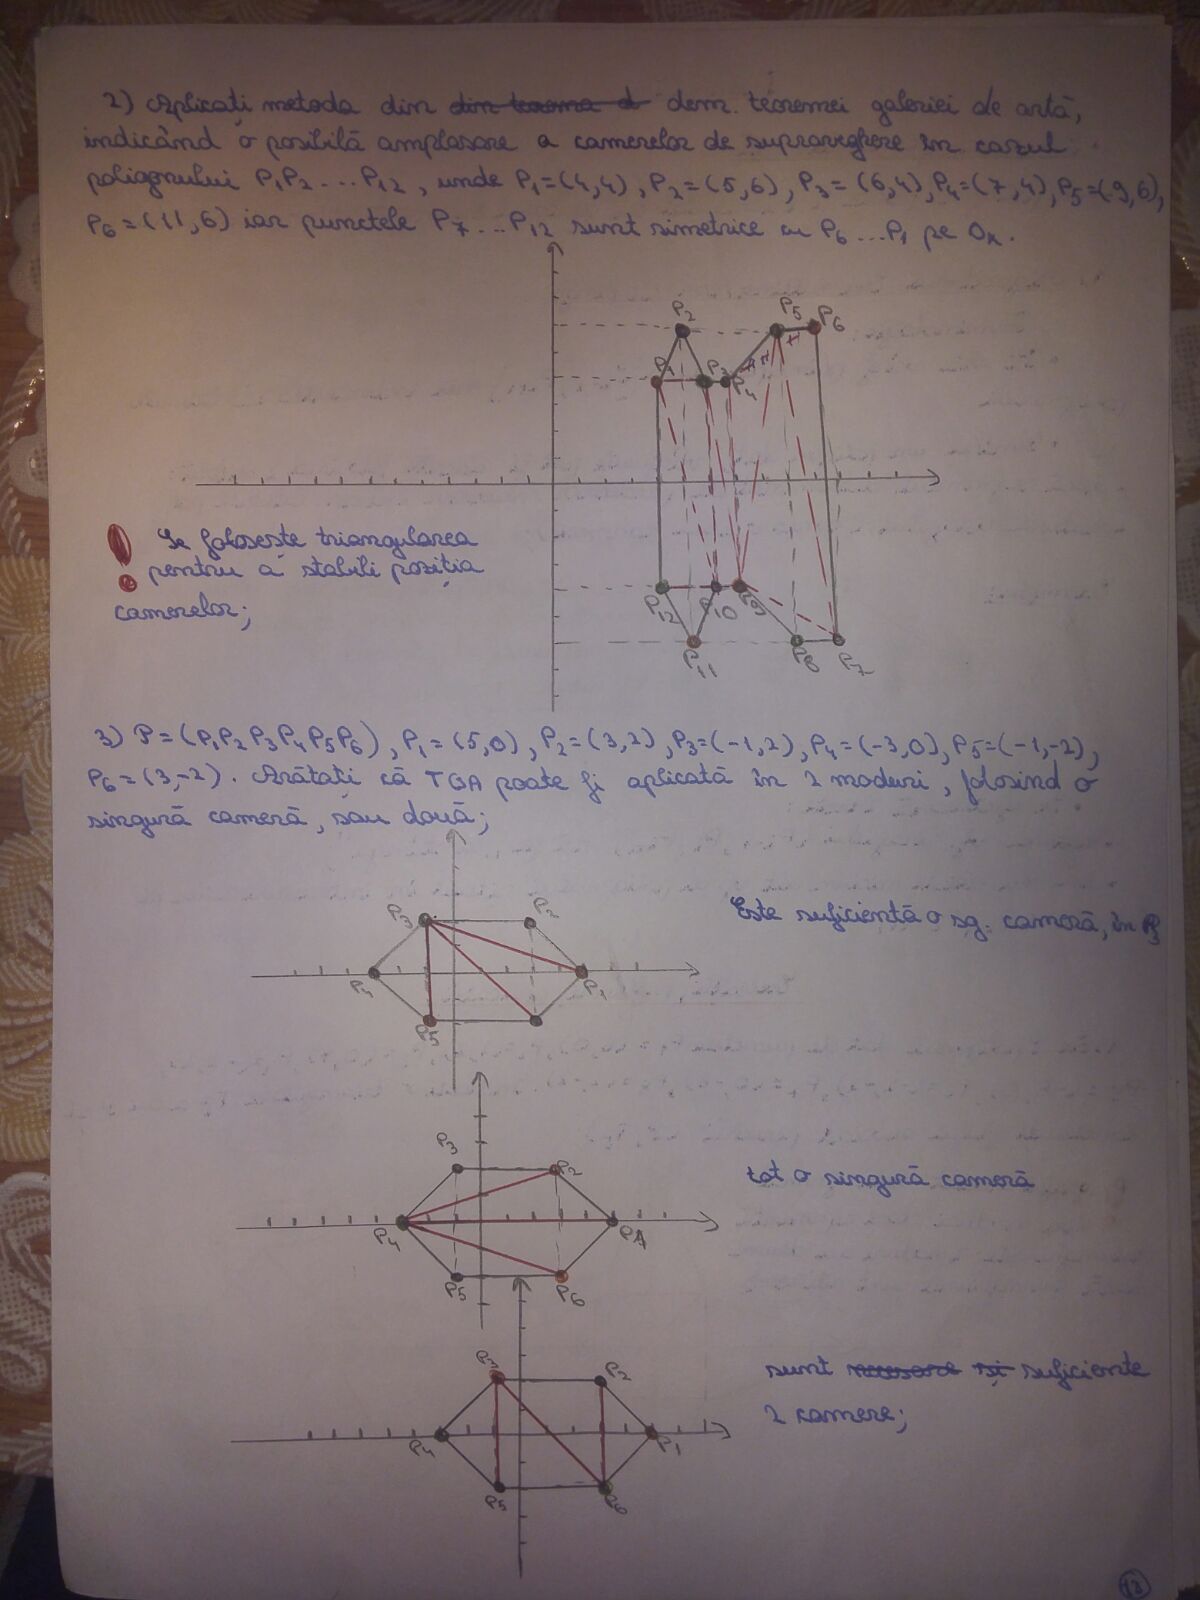 2) Aplicați metoda din din teorema d dem. teoremei galeriei de artă,
indicând o posibilă amplasare a camerelor de supraveghere în cazul
poligonului P1P2 ... P12, unde P1=(4,4), P2=(5,6), P3=(6,4), P4=(7,4), P5=(9,6),
P6=(11,6) iar punctele P7...P12 sunt simetrice cu P6...P1 pe Ox.
P2
P5
P6
P1
P3
P4
! Se folosește triangularea
pentru a stabili poziția
camerelor;
P12
P10
P9
P11
P8
P7
3) P=(P1P2P3P4P5P6), P1=(5,0), P2=(3,2), P3=(-1,2), P4=(-3,0), P5=(-1,-2),
P6=(3,-2). Arătați că TGA poate fi aplicată în 2 moduri, folosind o
singură cameră, sau două;
P3
P2
Este suficientă o sg. cameră, în P3
P4
P1
P5
P3
P2
tot o singură cameră
P4
P1
P5
P6
P3
P2
sunt necesare și suficiente
2 camere;
P4
P1
P5
P6